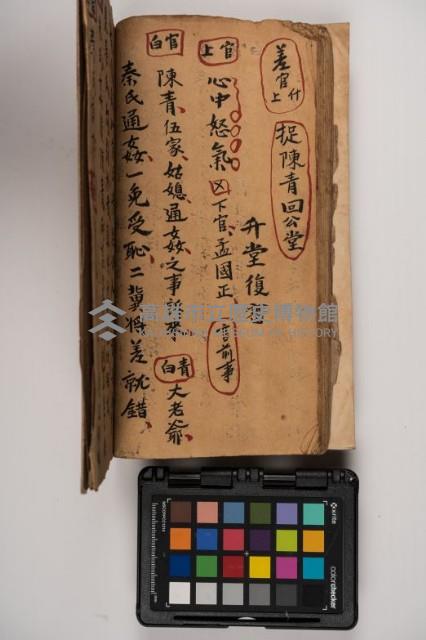 差官上什
捉陳青回公堂
升堂復
官上
心中怒氣凶下官孟國正言前事
官白
陳青伍家姑媳通姦之事
青白
大老爺
秦氏通姦一免受恥二冀將差就錯
高雄市立歷史博物館
KAOHSIUNG MUSEUM OF HISTORY
x-rite
colorchecker